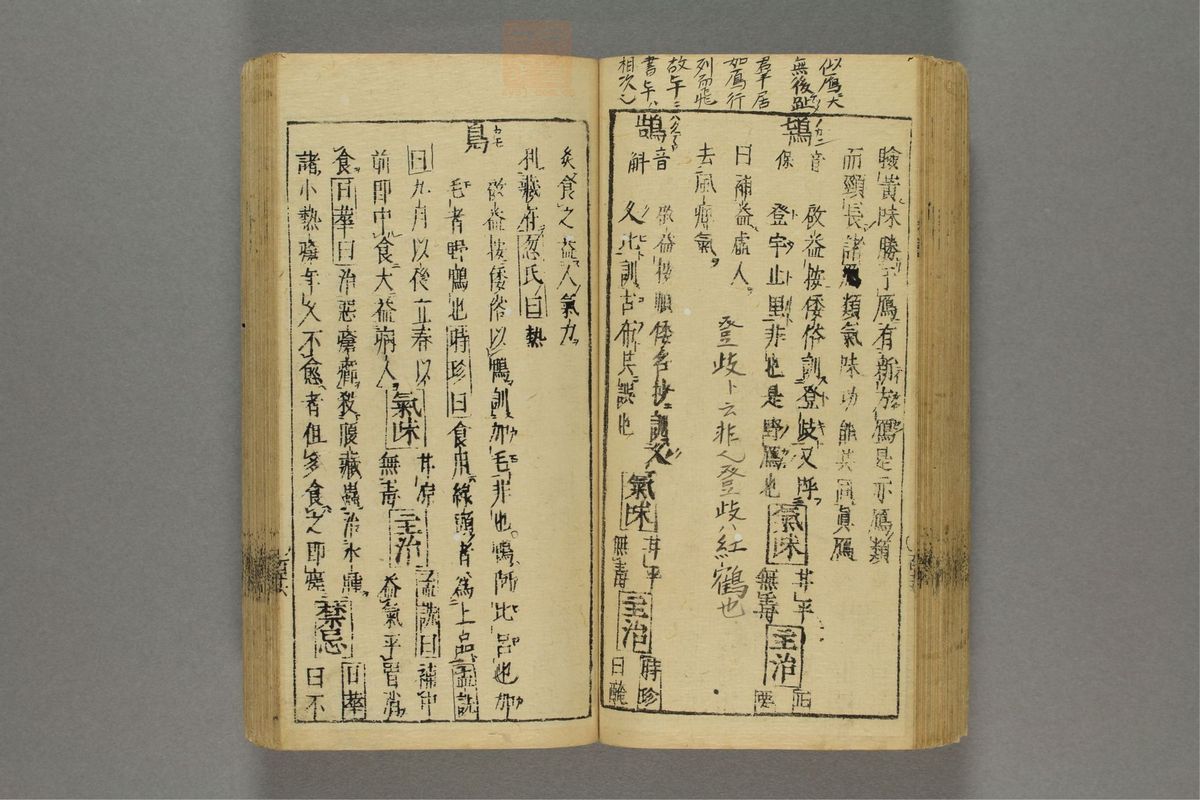 似雁大
無後趾
群居
如雁行
列而飛
相次
臉黄味勝于雁有新方雁是亦雁類
而頸長諸類氣味功能其同眞雁
鴇
音
保
啟益按倭俗訓登岐又呼
登宇止里非也是野雁也
氣味
甘平
無毒
主治
正
要
曰補益虛人
去風痺氣
登岐ト云非也登岐紅鶴也
鵠
音
斛
啟益按順倭名抄訓
久比訓古布共誤也
氣味
甘平
無毒
主治
時珍
曰醃
炙食之益人氣力
利藏府忽氏曰熱
鳧
カモ
啟益按倭俗以鴨訓加毛非也鴨阿比呂也加
毛者野鴨也時珍曰食用綠頭者爲上品孟詵
曰九月以後立春以
前即中食大益病人
氣味
甘凉
無毒
主治
孟詵曰補中
益氣平胃消
食日華曰治惡瘡癤殺腹藏蟲治水腫
諸小熱瘡年久不愈者但多食之即瘥
禁忌
日華
曰不